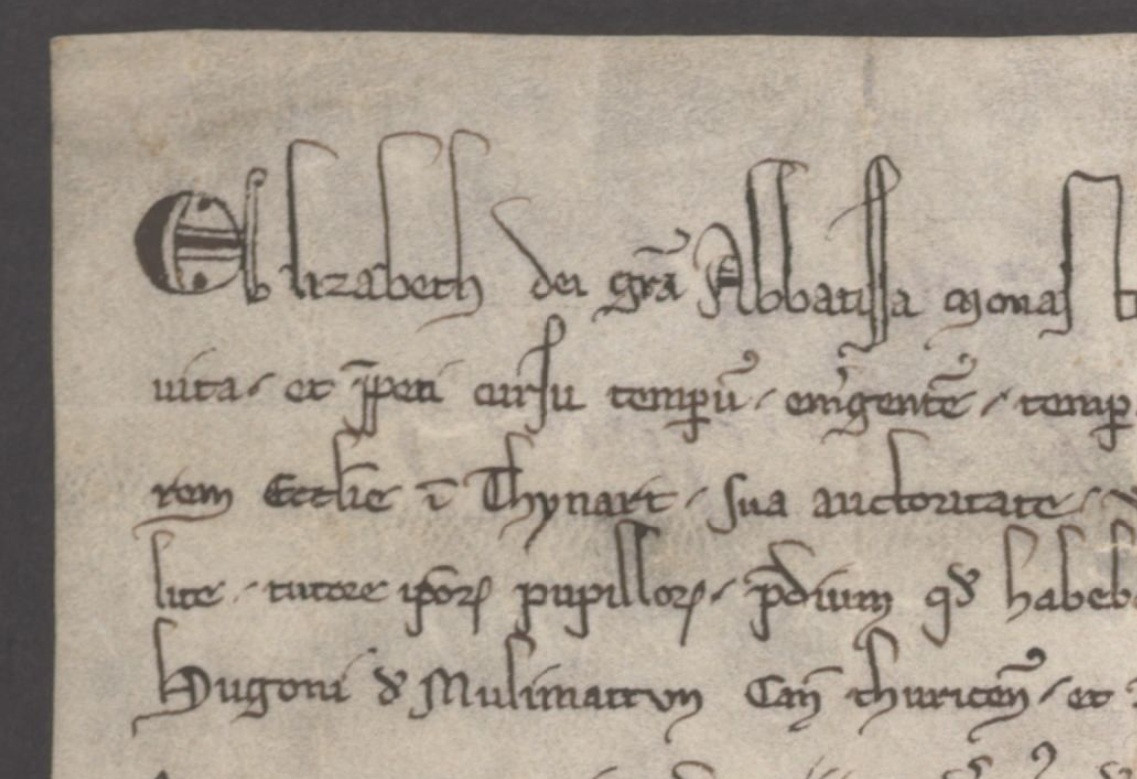 Elizabeth dei gr̄a Abbatissa monas
uita et p̄peti cursu tempꝝū emgentē temp
rem Eccl̄ie ī Thynart sua auctoritate
lite tutore ip̄oꝝ pupilloꝝ p̄dium qđ habeb
Hugoni đ Mulimattvn Cañ thuriceñ et